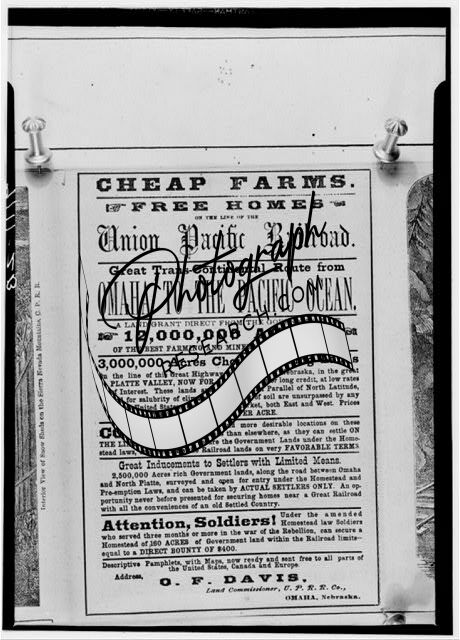 CHEAP FARMS.
FREE HOMES
ON THE LINE OF THE
Union Pacific Railroad.
Great Trans-Continental Route from
OMAHA TO THE PACIFIC OCEAN.
A LAND GRANT DIRECT FROM THE
12,000,000
OF THE BEST FARMING AND
3,000,000 Acres
on the line of the Great Highway Nebraska, in the great
PLATTE VALLEY, NOW FOR or long credit, at low rates
of Interest. These lands Parallel of North Latitude,
for salubrity of of soil are unsurpassed by any
United States both East and West. Prices
ER ACRE.
more desirable locations on these
than elsewhere, as they can settle ON
THE the Government Lands under the Home-
stead laws, Railroad lands on very FAVORABLE TERMS.
Great Inducements to Settlers with Limited Means.
2,500,000 Acres rich Government lands, along the road between Omaha
and North Platte, surveyed and open for entry under the Homestead and
Pre-emption Laws, and can be taken by ACTUAL SETTLERS ONLY. An op-
portunity never before presented for securing homes near a Great Railroad
with all the conveniences of an old Settled Country.
Attention, Soldiers! Under the amended
Homestead law Soldiers
who served three months or more in the war of the Rebellion, can secure a
Homestead of 160 ACRES of Government land within the Railroad limits—
equal to a DIRECT BOUNTY OF $400.
Descriptive Pamphlets, with Maps, now ready and sent free to all parts of
the United States, Canada and Europe.
Address, O. F. DAVIS,
Land Commissioner, U. P. R. R. Co.,
OMAHA, Nebraska.
Interior View of Snow Sheds on the Sierra Nevada Mountains, C. P. R. R.
Photograph
RESEARCH